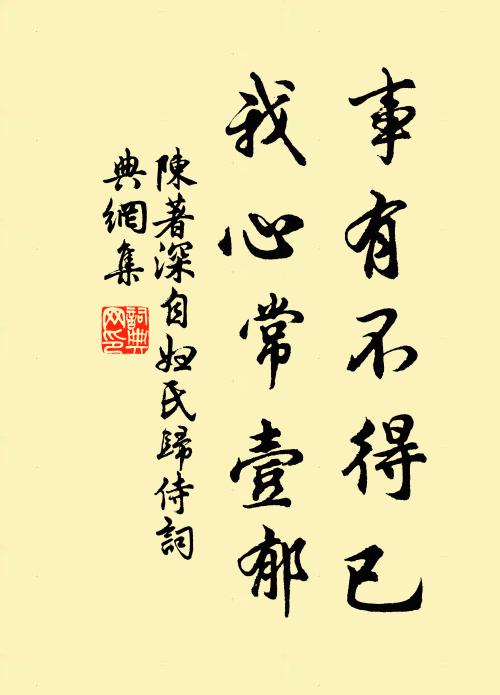 事有不得已
我心常壹郁
陳著深自氏歸侍詞
典網集
詞典
网印